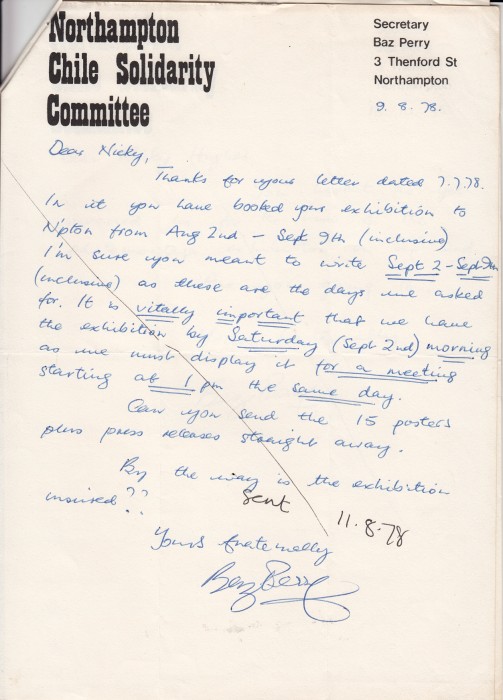 Northampton
Chile Solidarity
Committee
Secretary
Baz Perry
3 Thenford St
Northampton
9.8.78.
Dear Nicky,
Thanks for your letter dated 7.7.78.
In it you have booked your exhibition to
N'pton from Aug 2nd – Sept 9th (inclusive)
I'm sure you meant to write Sept 2 – Sept 9th
(inclusive) as these are the days we asked
for. It is vitally important that we have
the exhibition by Saturday (Sept 2nd) morning
as we must display it for a meeting
starting at 1 pm the same day.
Can you send the 15 posters
plus press releases straight away.
By the way is the exhibition
insured??
Sent
11.8.78
Yours fraternally
Baz Perry